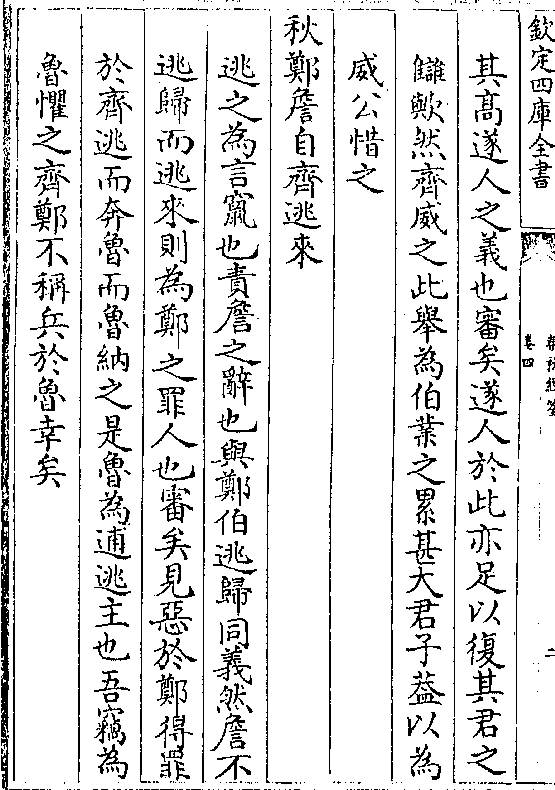 欽定四庫全書
卷四
二
其高遂人之義也審矣遂人於此亦足以復其君之
讎歟然齊威之此舉為伯業之累甚大君子葢以為
威公惜之
秋鄭詹自齊逃來
逃之為言竄也責詹之辭也與鄭伯逃歸同義然詹不
逃歸而逃來則為鄭之罪人也審矣見惡於鄭得罪
於齊逃而奔魯而魯納之是魯為逋逃主也吾竊為
魯懼之齊鄭不稱兵於魯幸矣